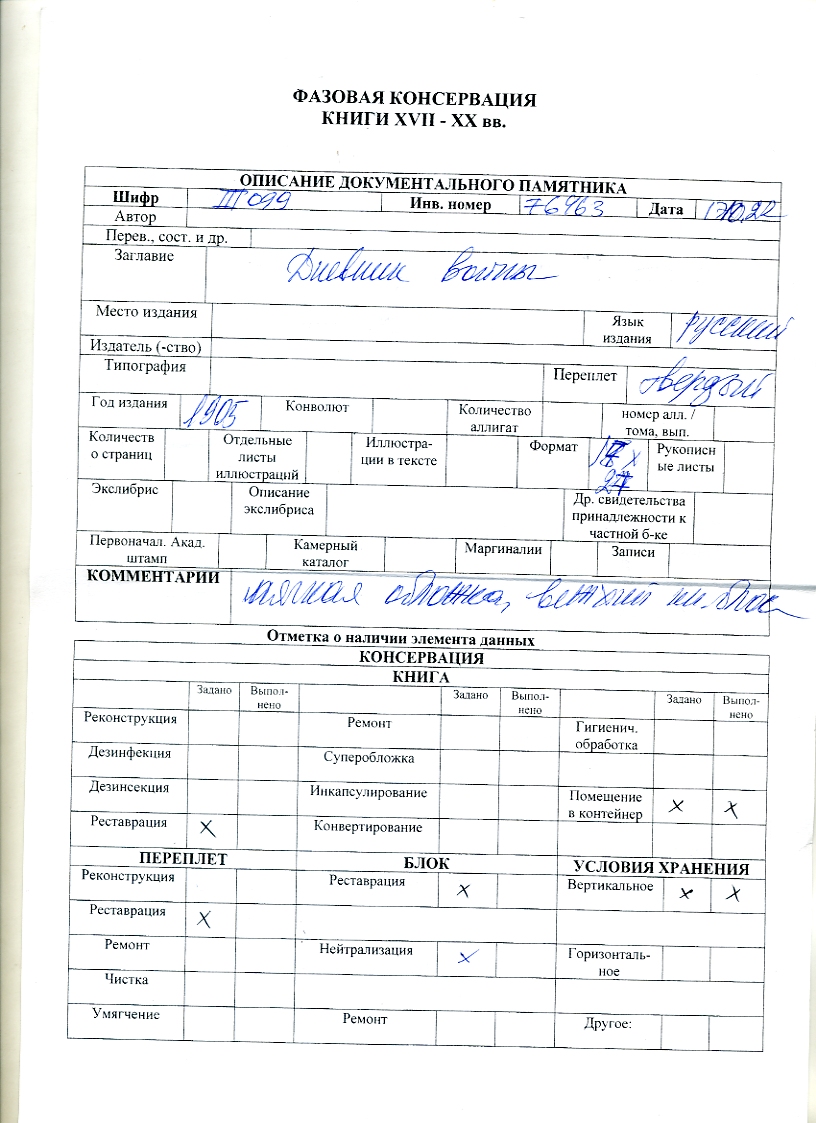 ФАЗОВАЯ КОНСЕРВАЦИЯ
КНИГИ XVII - XX вв.
ОПИСАНИЕ ДОКУМЕНТАЛЬНОГО ПАМЯТНИКА
Шифр Ш 099 Инв. номер 76463 Дата
Автор
Перев., сост. и др.
Заглавие Дневник войны
Место издания Язык издания русский
Издатель (-ство)
Типография Переплет твердый
Год издания 1905 Конволют Количество аллигат номер алл. / тома, вып.
Количеств о страниц Отдельные листы иллюстраций Иллюстра- ции в тексте Формат Рукописн ые листы
Экслибрис Описание экслибриса Др. свидетельства принадлежности к частной б-ке
Первоначал. Акад. штамп Камерный каталог Маргиналии Записи
КОММЕНТАРИИ мягкая обложка, ветхий кн. блок
Отметка о наличии элемента данных
КОНСЕРВАЦИЯ
КНИГА
Задано Выпол- нено Задано Выпол- нено Задано Выпол- нено
Реконструкция Ремонт Гигиенич. обработка
Дезинфекция Суперобложка
Дезинсекция Инкапсулирование Помещение в контейнер х х
Реставрация х Конвертирование
ПЕРЕПЛЕТ БЛОК УСЛОВИЯ ХРАНЕНИЯ
Реконструкция Реставрация х Вертикальное х х
Реставрация х
Ремонт Нейтрализация х Горизонталь- ное
Чистка
Умягчение Ремонт Другое: